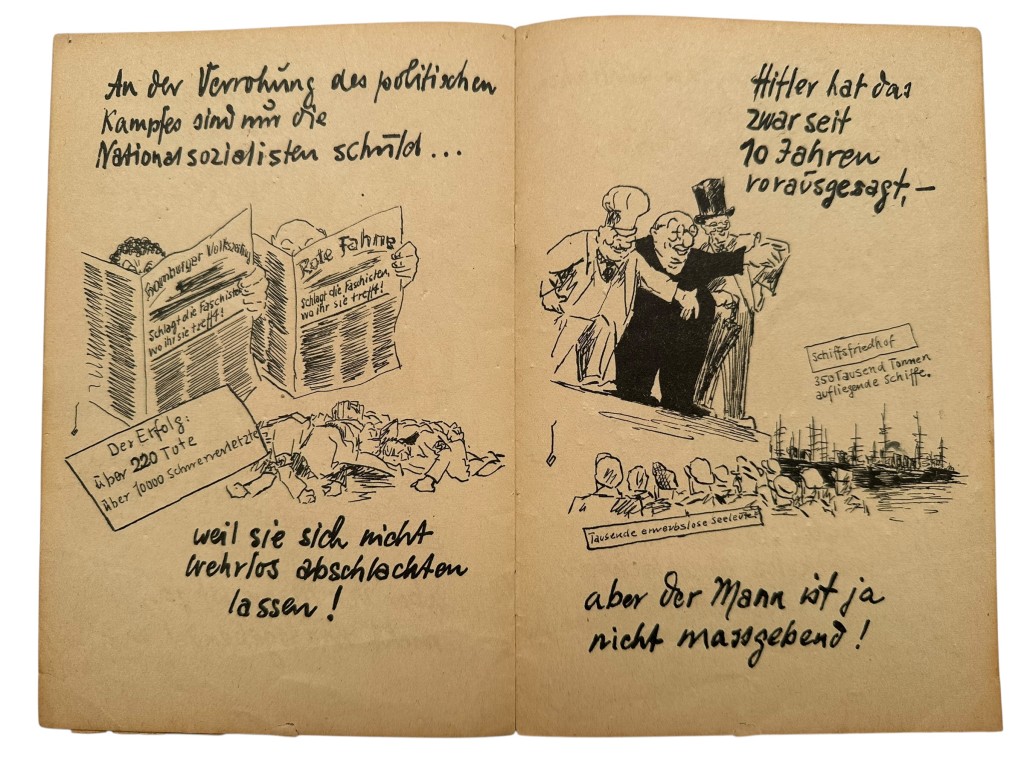 An der Verrohung des politischen
Kampfes sind nur die
Nationalsozialisten schuld...
Hamburger Volkszeitung
Schlagt die Faschisten
wo ihr sie trefft!
Rote Fahne
Schlagt die Faschisten,
wo ihr sie trefft!
Der Erfolg:
über 220 Tote
über 10000 Schwerverletzte
weil sie sich nicht
wehrlos abschlachten
lassen!
Hitler hat das
zwar seit
10 Jahren
vorausgesagt, —
Schiffsfriedhof
350 Tausend Tonnen
aufliegende Schiffe.
Tausende erwerbslose Seeleute!
aber der Mann ist ja
nicht massgebend!